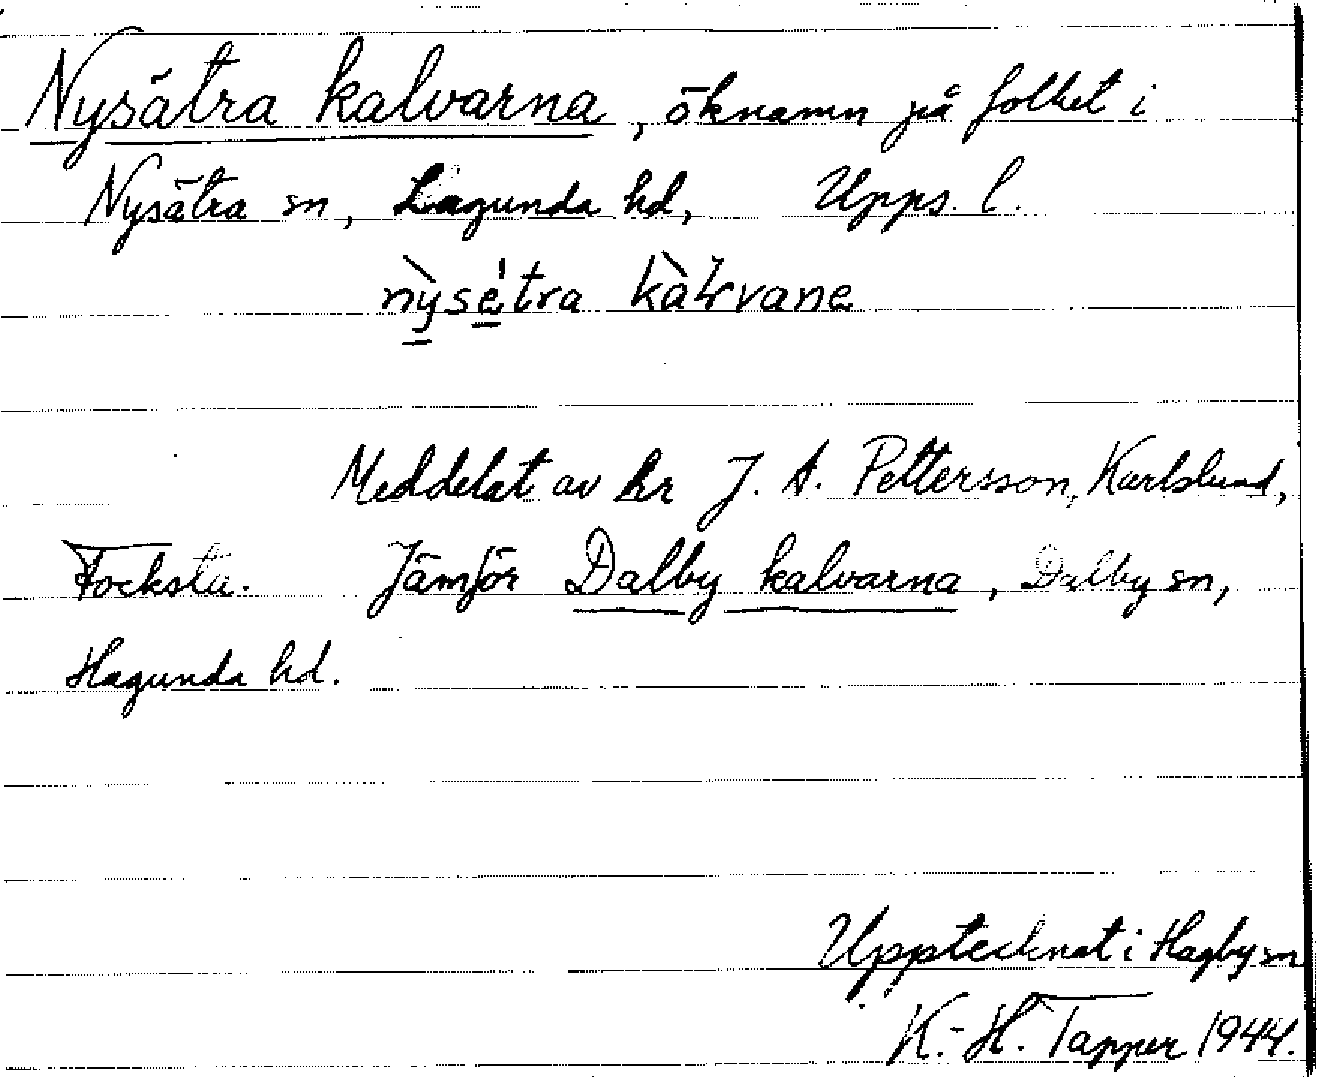 Nysätra kalvarna, öknamn på folket i
Nysätra sn, Lagunda hd, Upps. l.
nỳsé̱tra kàɫvane
Meddelat av hr J. A. Pettersson, Karlslund,
Focksta. Jämför Dalby kalvarna, Dalby sn,
Hagunda hd.
Upptecknat i Hagby sn
K.-H. Tapper 1944.